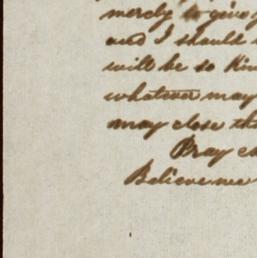 merely to give
and I should
will be so kind
whatever may
may close th
Pray
Believe me